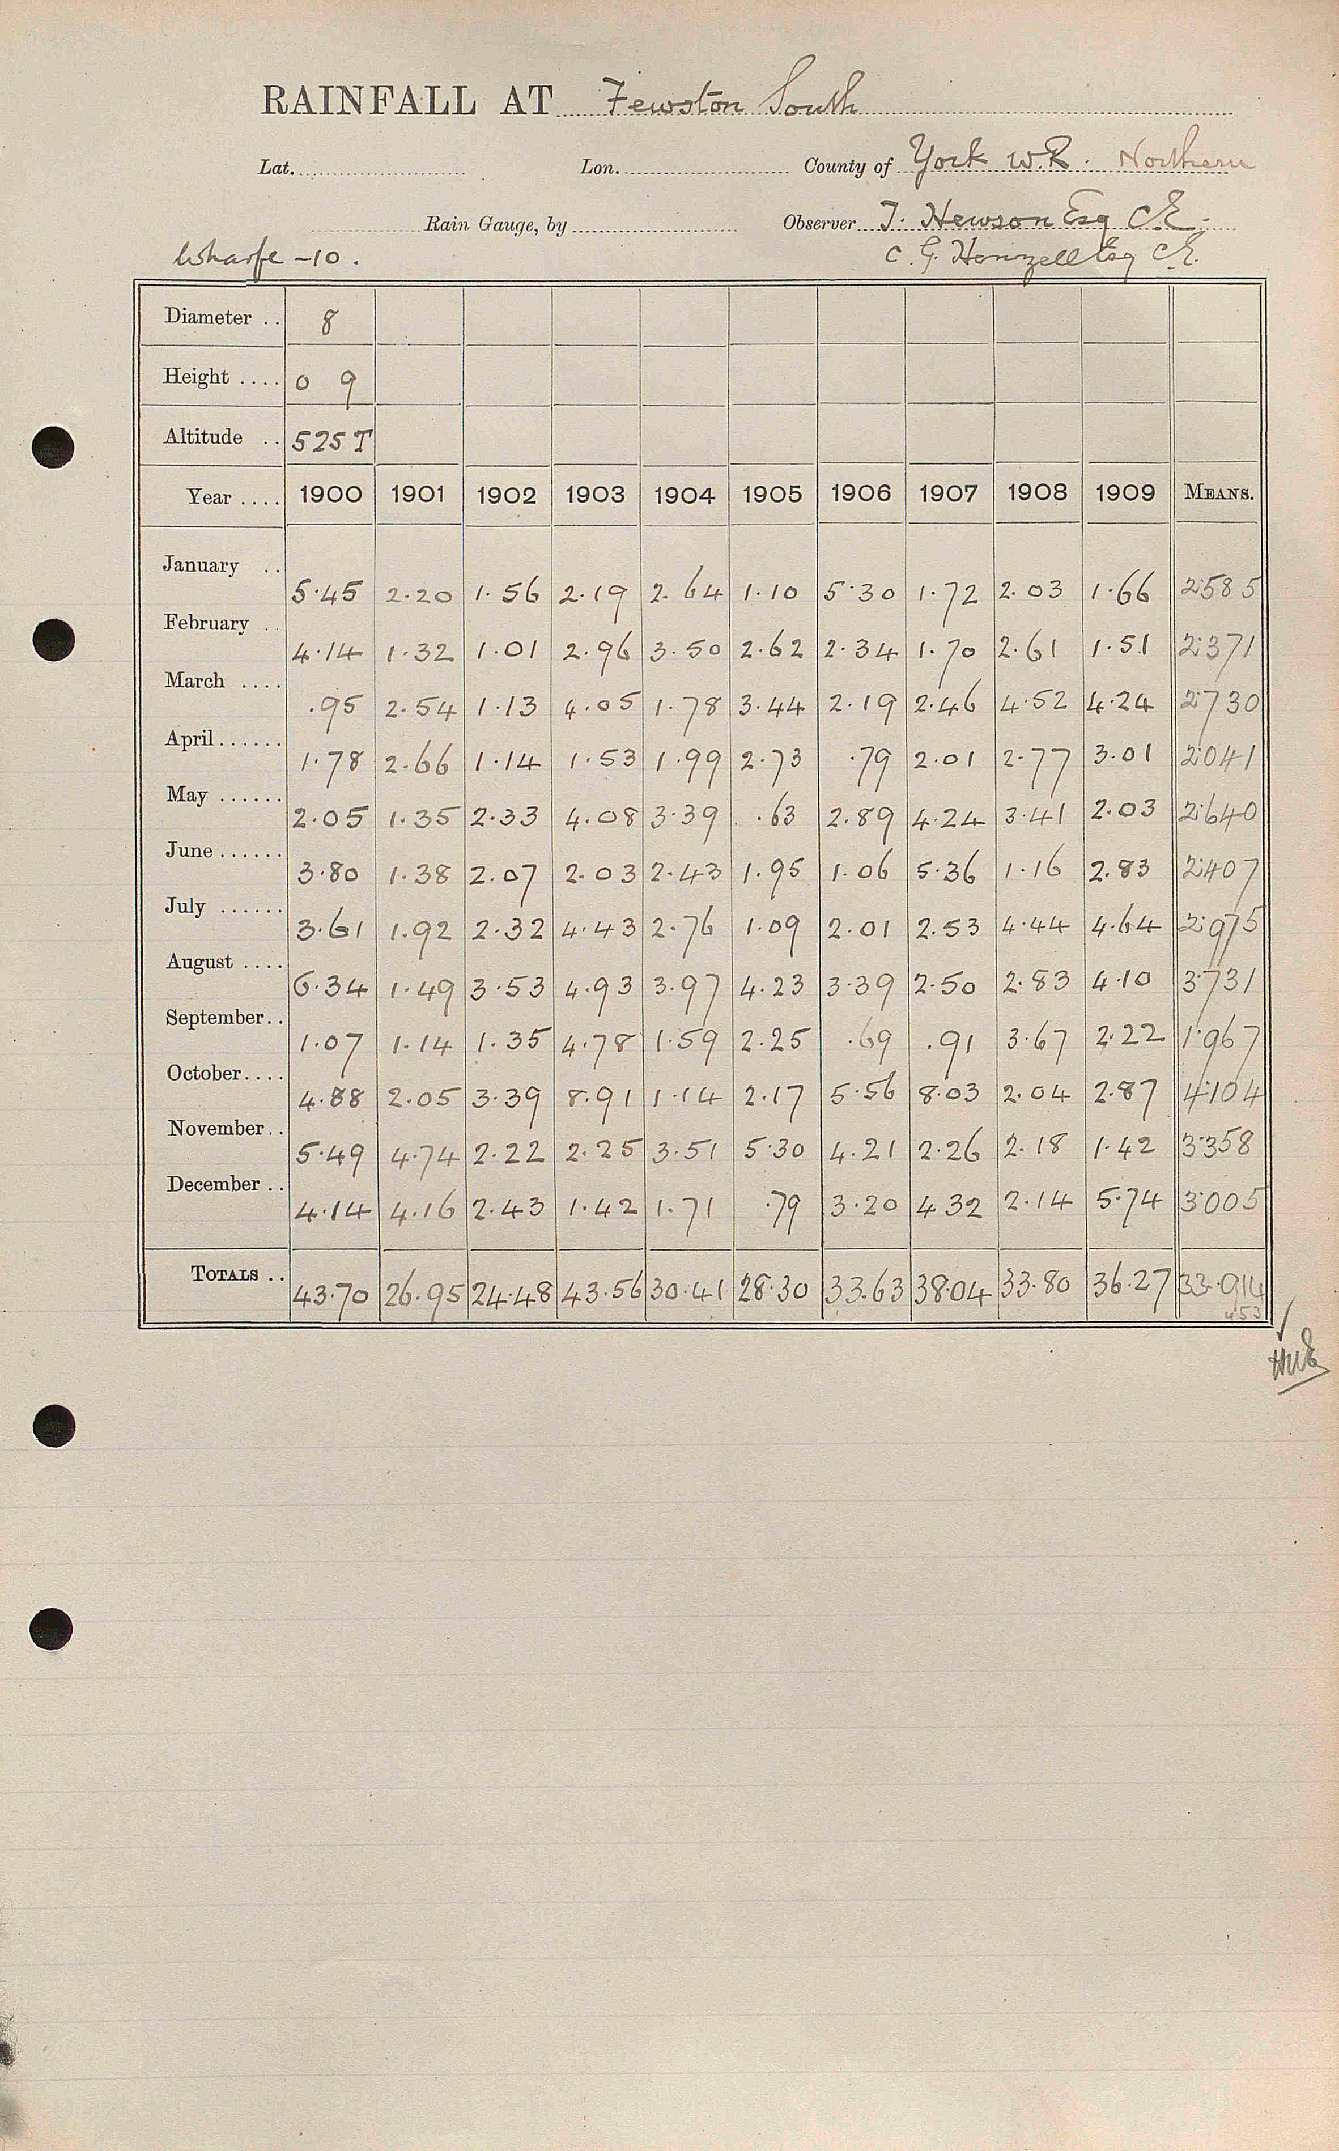 RAINFALL AT Fewston South
Lat. Lon. County of York W.R. Northern
Rain Gauge, by Observer T. Newson Esq C.E.
Wharfe -10. C. G. Honzell Esq C.E.
Diameter .. 8
Height .... 0 9
Altitude .. 525 T
Year .... 1900 1901 1902 1903 1904 1905 1906 1907 1908 1909 MEANS.
January .. 5.45 2.20 1.56 2.19 2.64 1.10 5.30 1.72 2.03 1.66 2.585
February .. 4.14 1.32 1.01 2.96 3.50 2.62 2.34 1.70 2.61 1.51 2.371
March .... .95 2.54 1.13 4.05 1.78 3.44 2.19 2.46 4.52 4.24 2.730
April...... 1.78 2.66 1.14 1.53 1.99 2.73 .79 2.01 2.77 3.01 2.041
May ...... 2.05 1.35 2.33 4.08 3.39 .63 2.89 4.24 3.41 2.03 2.640
June...... 3.80 1.38 2.07 2.03 2.43 1.95 1.06 5.36 1.16 2.83 2.407
July ...... 3.61 1.92 2.32 4.43 2.76 1.09 2.01 2.53 4.44 4.64 2.975
August .... 6.34 1.49 3.53 4.93 3.97 4.23 3.39 2.50 2.83 4.10 3.731
September.. 1.07 1.14 1.35 4.78 1.59 2.25 .69 .91 3.67 2.22 1.967
October.... 4.88 2.05 3.39 8.91 1.14 2.17 5.56 8.03 2.04 2.87 4.104
November.. 5.49 4.74 2.22 2.25 3.51 5.30 4.21 2.26 2.18 1.42 3.358
December .. 4.14 4.16 2.43 1.42 1.71 .79 3.20 4.32 2.14 5.74 3.005
TOTALS .. 43.70 26.95 24.48 43.56 30.41 28.30 33.63 38.04 33.80 36.27 33.914